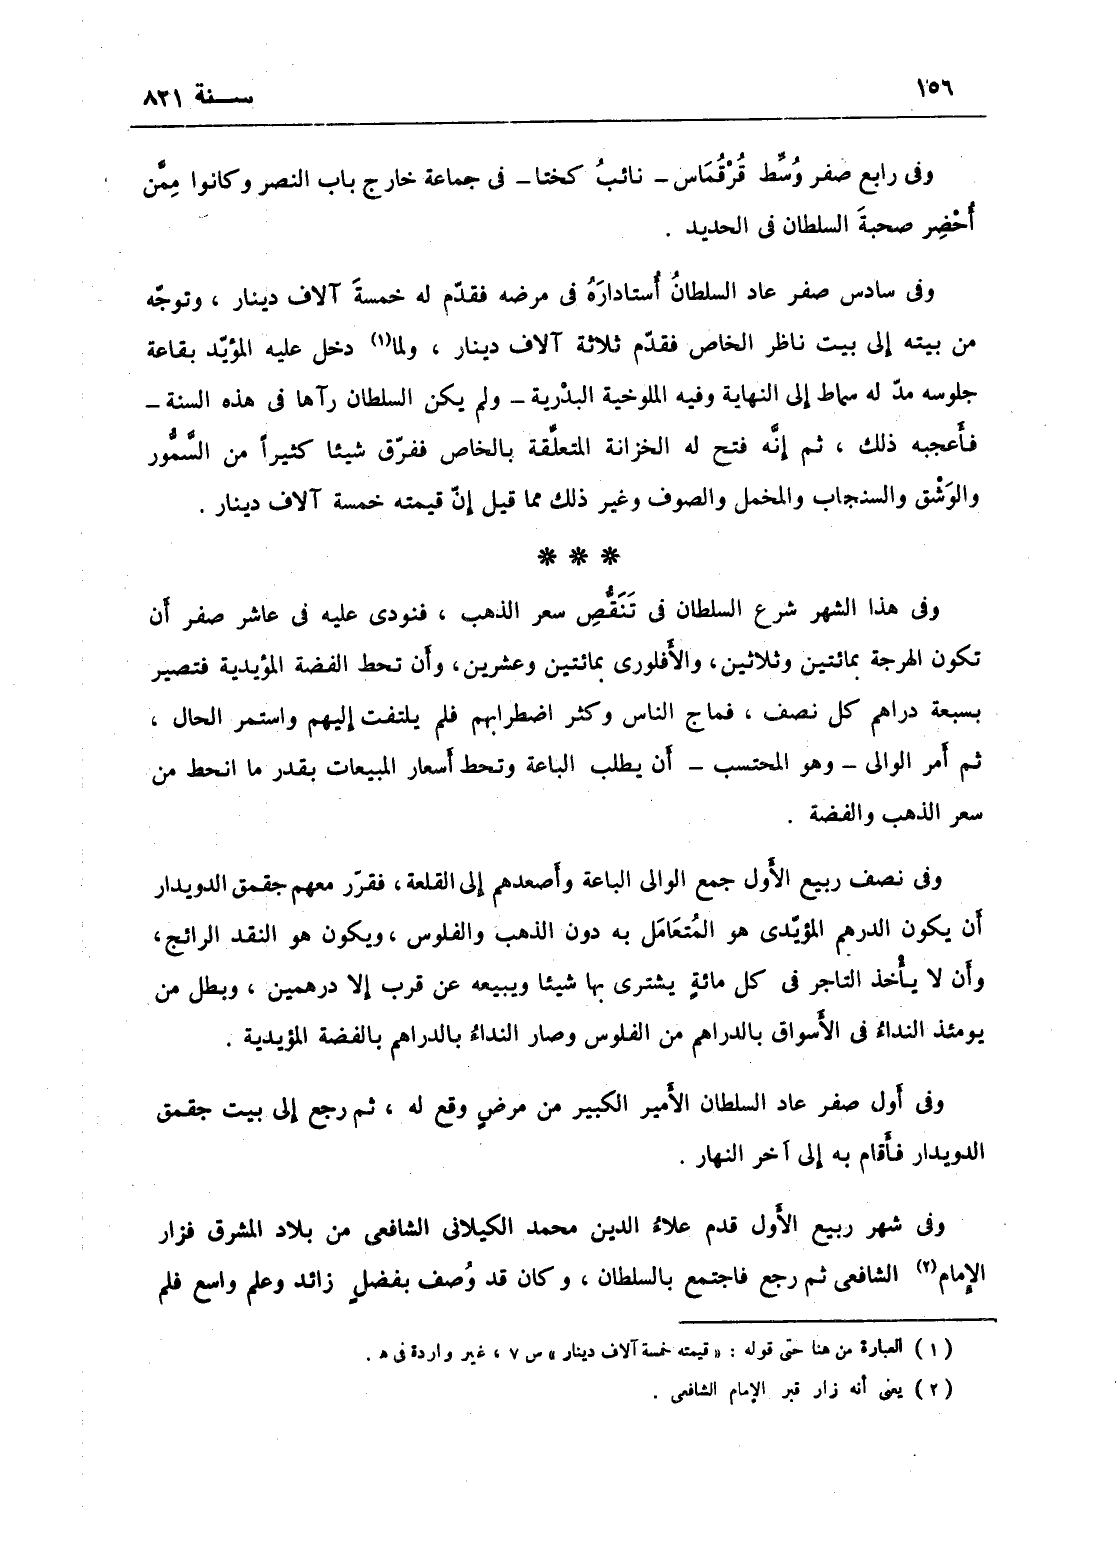 ١٥٦
سنة ٨٢١
وفى رابع صفر وُسِّط قُرْقُمَاس – نائبُ كختا – فى جماعة خارج باب النصر وكانوا مِمَّن
أُحْضِر صحبةَ السلطان فى الحديد .
وفى سادس صفر عاد السلطانُ أُستادارَهُ فى مرضه فقدّم له خمسةَ آلاف دينار ، وتوجّه
من بيته إلى بيت ناظر الخاص فقدّم ثلاثة آلاف دينار ، ولما(١) دخل عليه المؤيّد بقاعة
جلوسه مدّ له سماط إلى النهاية وفيه الملوخية البدْرية – ولم يكن السلطان رآها فى هذه السنة –
فأَعجبه ذلك ، ثم إنَّه فتح له الخزانة المتعلَّقة بالخاص ففرّق شيئا كثيراً من السَّمُّور
والوَشْق والسنجاب والمخمل والصوف وغير ذلك مما قيل إنّ قيمته خمسة آلاف دينار .
* * *
وفى هذا الشهر شرع السلطان فى تَنَقُّصِ سعر الذهب ، فنودى عليه فى عاشر صفر أَن
تكون الهرجة بمائتين وثلاثين، والأَفلورى بمائتين وعشرين، وأَن تحط الفضة المؤيدية فتصير
بسبعة دراهم كل نصف ، فماج الناس وكثر اضطرابهم فلم يلتفت إليهم واستمر الحال ،
ثم أَمر الوالى – وهو المحتسب – أَن يطلب الباعة وتحط أَسعار المبيعات بقدر ما انحط من
سعر الذهب والفضة .
وفى نصف ربيع الأَول جمع الوالى الباعة وأَصعدهم إلى القلعة، فقرّر معهم جقمق الدويدار
أَن يكون الدرهم المؤيّدى هو المُتعَامَل به دون الذهب والفلوس ،ويكون هو النقد الرائج،
وأَن لا يأْخذ التاجر فى كل مائةٍ يشترى بها شيئا ويبيعه عن قرب إلا درهمين ، وبطل من
يومئذ النداءُ فى الأَسواق بالدراهم من الفلوس وصار النداءُ بالدراهم بالفضة المؤيدية .
وفى أَول صفر عاد السلطان الأَمير الكبير من مرضٍ وقع له ، ثم رجع إلى بيت جقمق
الدويدار فأَقام به إلى آخر النهار .
وفى شهر ربيع الأَول قدم علاءُ الدين محمد الكيلانى الشافعى من بلاد المشرق فزار
الإمام(٢) الشافعى ثم رجع فاجتمع بالسلطان ، وكان قد وُصف بفضلٍ زائد وعلم واسع فلم
(١) العبارة من هنا حتى قوله : «قيمته خمسة آلاف دينار» س ٧ ، غير واردة فى ه .
(٢) يعنى أنه زار قبر الإمام الشافعى .